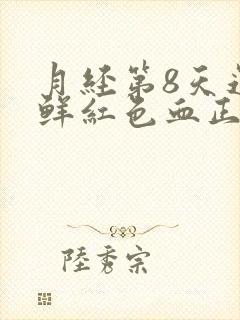 月経第8天
鲜红色血正
陸秀宗